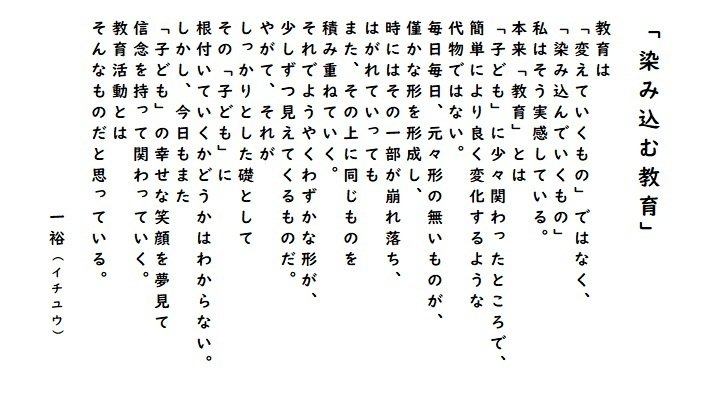 「染み込む教育」
教育は
「変えていくもの」ではなく、
「染み込んでいくもの」
私はそう実感している。
本来「教育」とは
「子ども」に少々関わったところで、
簡単により良く変化するような
代物ではない。
毎日毎日、元々形の無いものが、
僅かな形を形成し、
時にはその一部が崩れ落ち、
はがれていっても
また、その上に同じものを
積み重ねていく。
それでようやくわずかな形が、
少しずつ見えてくるものだ。
やがて、それが
しっかりとした礎として
その「子ども」に
根付いていくかどうかはわからない。
しかし、今日もまた
「子ども」の幸せな笑顔を夢見て
信念を持って関わっていく。
教育活動とは
そんなものだと思っている。
一裕（イチユウ）